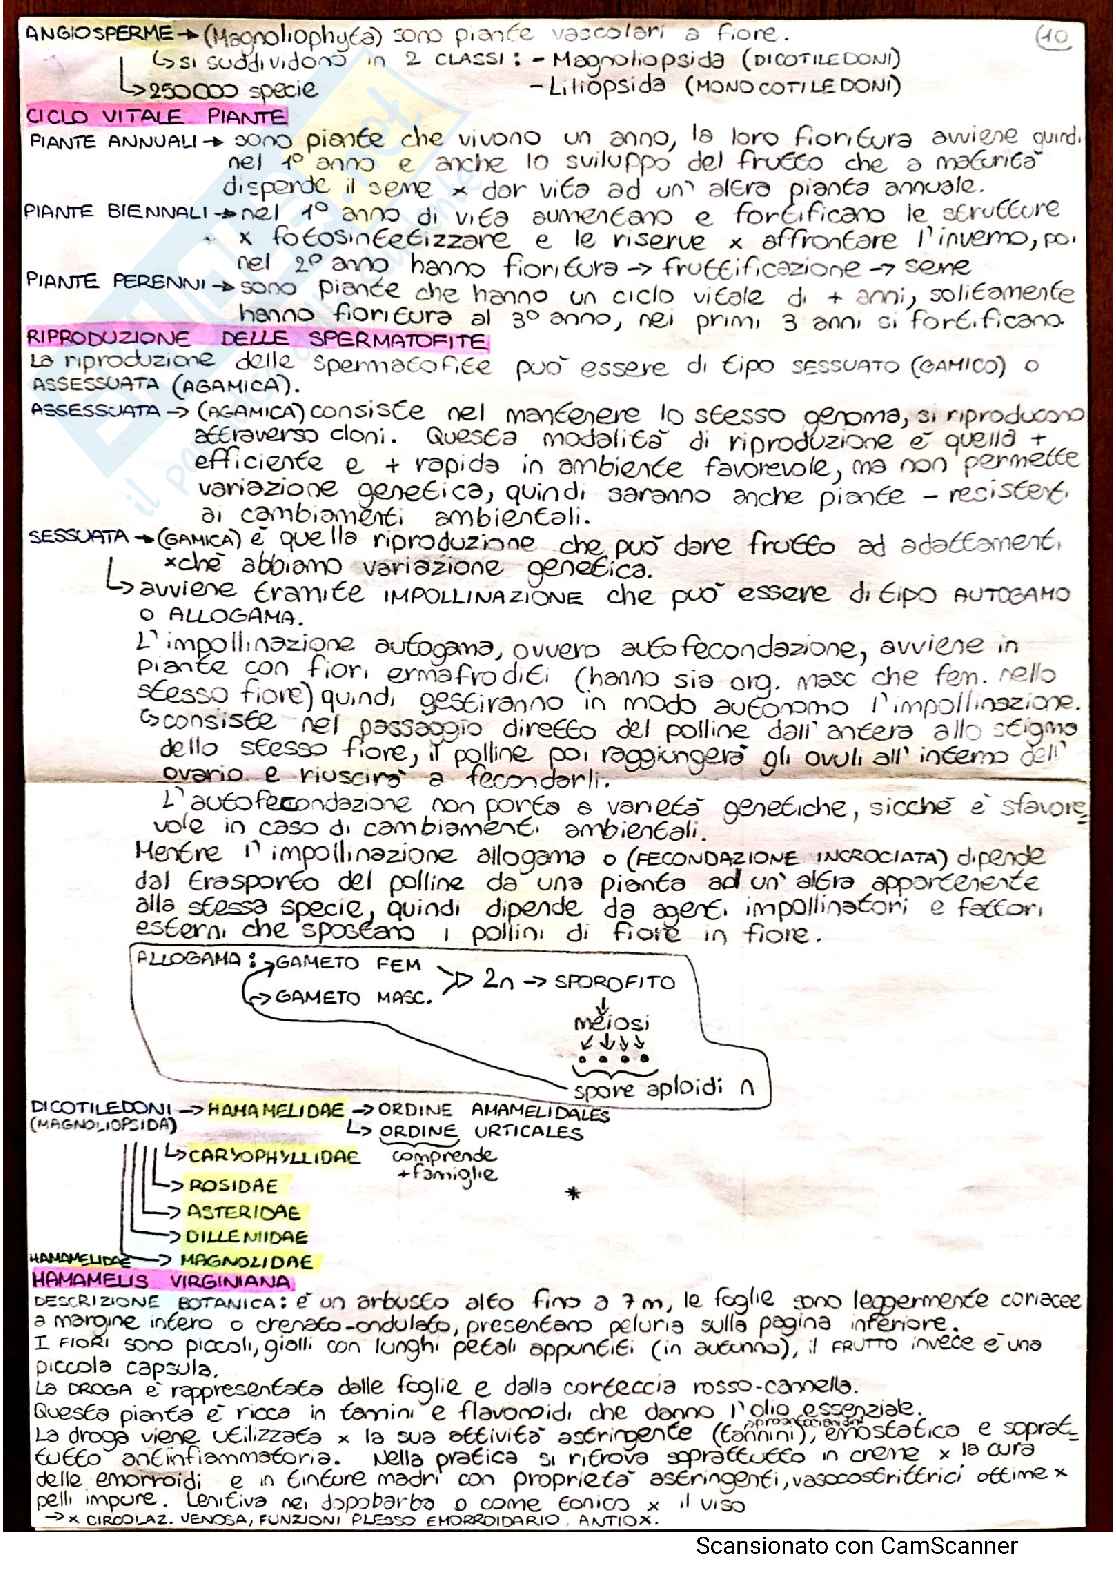 ANGIOSPERME → (Magnoliophyta) sono piante vascolari a fiore. 10
↳ si suddividono in 2 CLASSI : - Magnoliopsida (DICOTILEDONI)
↳ 250000 specie - Liliopsida (MONOCOTILEDONI)
CICLO VITALE PIANTE
PIANTE ANNUALI → sono piante che vivono un anno, la loro fioritura avviene quindi
nel 1° anno e anche lo sviluppo del frutto che a maturità
disperde il seme x dar vita ad un' altra pianta annuale.
PIANTE BIENNALI → nel 1° anno di vita aumentano e fortificano le strutture
x fotosintetizzare e le riserve x affrontare l'inverno, poi
nel 2° anno hanno fioritura → fruttificazione → seme
PIANTE PERENNI → sono piante che hanno un ciclo vitale di + anni, solitamente
hanno fioritura al 3° anno, nei primi 3 anni si fortificano.
RIPRODUZIONE DELLE SPERMATOFITE
La riproduzione delle spermatofite può essere di tipo SESSUATO (GAMICO) o
ASSESSUATA (AGAMICA).
ASSESSUATA → (AGAMICA) consiste nel mantenere lo stesso genoma, si riproducono
attraverso cloni. Questa modalità di riproduzione è quella +
efficiente e + rapida in ambiente favorevole, ma non permette
variazione genetica, quindi saranno anche piante - resistenti
ai cambiamenti ambientali.
SESSUATA → (GAMICA) è quella riproduzione che può dare frutto ad adattamenti
xchè abbiamo variazione genetica.
↳ avviene tramite IMPOLLINAZIONE che può essere di tipo AUTOGAMO
o ALLOGAMA.
L'impollinazione autogama, ovvero autofecondazione, avviene in
piante con fiori ermafroditi (hanno sia org. masc che fem. nello
stesso fiore) quindi gestiranno in modo autonomo l'impollinazione.
↳ consiste nel passaggio diretto del polline dall'antera allo stigma
dello stesso fiore, il polline poi raggiungerà gli ovuli all'interno dell'
ovario e riuscirà a fecondarli.
L'autofecondazione non porta a varietà genetiche, sicchè è sfavore
vole in caso di cambiamenti ambientali.
Mentre l'impollinazione allogama o (FECONDAZIONE INCROCIATA) dipende
dal trasporto del polline da una pianta ad un' altra appartenente
alla stessa specie, quindi dipende da agenti impollinatori e fattori
esterni che spostano i pollini di fiore in fiore.
ALLOGAMA : → GAMETO FEM
→ GAMETO MASC. > 2n → SPOROFITO
↓
meiosi
↓↓↓↓
spore aploidi n
DICOTILEDONI → HAMAMELIDAE → ORDINE AMAMELIDALES
(MAGNOLIOPSIDA) ↳ ORDINE URTICALES
↳ CARYOPHYLLIDAE comprende
+ famiglie
→ ROSIDAE *
→ ASTERIDAE
→ DILLENIIDAE
HAMAMELIDAE → MAGNOLIDAE
HAMAMELIS VIRGINIANA
DESCRIZIONE BOTANICA : è un arbusto alto fino a 7 m, le foglie sono leggermente coriacee
a margine intero o crenato-ondulato, presentano peluria sulla pagina inferiore.
I FIORI sono piccoli, gialli con lunghi petali appuntiti (in autunno), il FRUTTO invece è una
piccola capsula.
La DROGA è rappresentata dalle foglie e dalla corteccia rosso-cannella.
Questa pianta è ricca in tamini e flavonoidi che danno l'olio essenziale.
La droga viene utilizzata x la sua attività astringente (tannini), emostatico e soprat-
tutto antinfiammatoria. Nella pratica si ritrova soprattutto in creme x la cura
delle emorroidi e in tinture madri con proprietà astringenti, vasocostrittrici ottime x
pelli impure. Lenitiva nei dopobarba o come tonico x il viso
→ x CIRCOLAZ. VENOSA, FUNZIONI PLESSO EMORROIDARIO. ANTIOX.
Scansionato con CamScanner